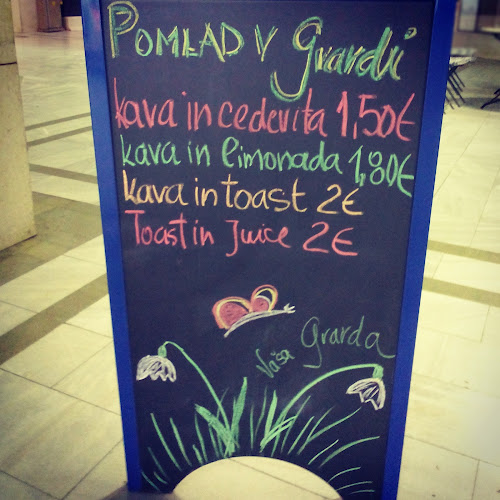 POMLAD V Grardi
kava in cedevita 1,50€
kava in limonada 1,80€
kava in toast 2€
Toast in Juice 2€
Vaša Grarda